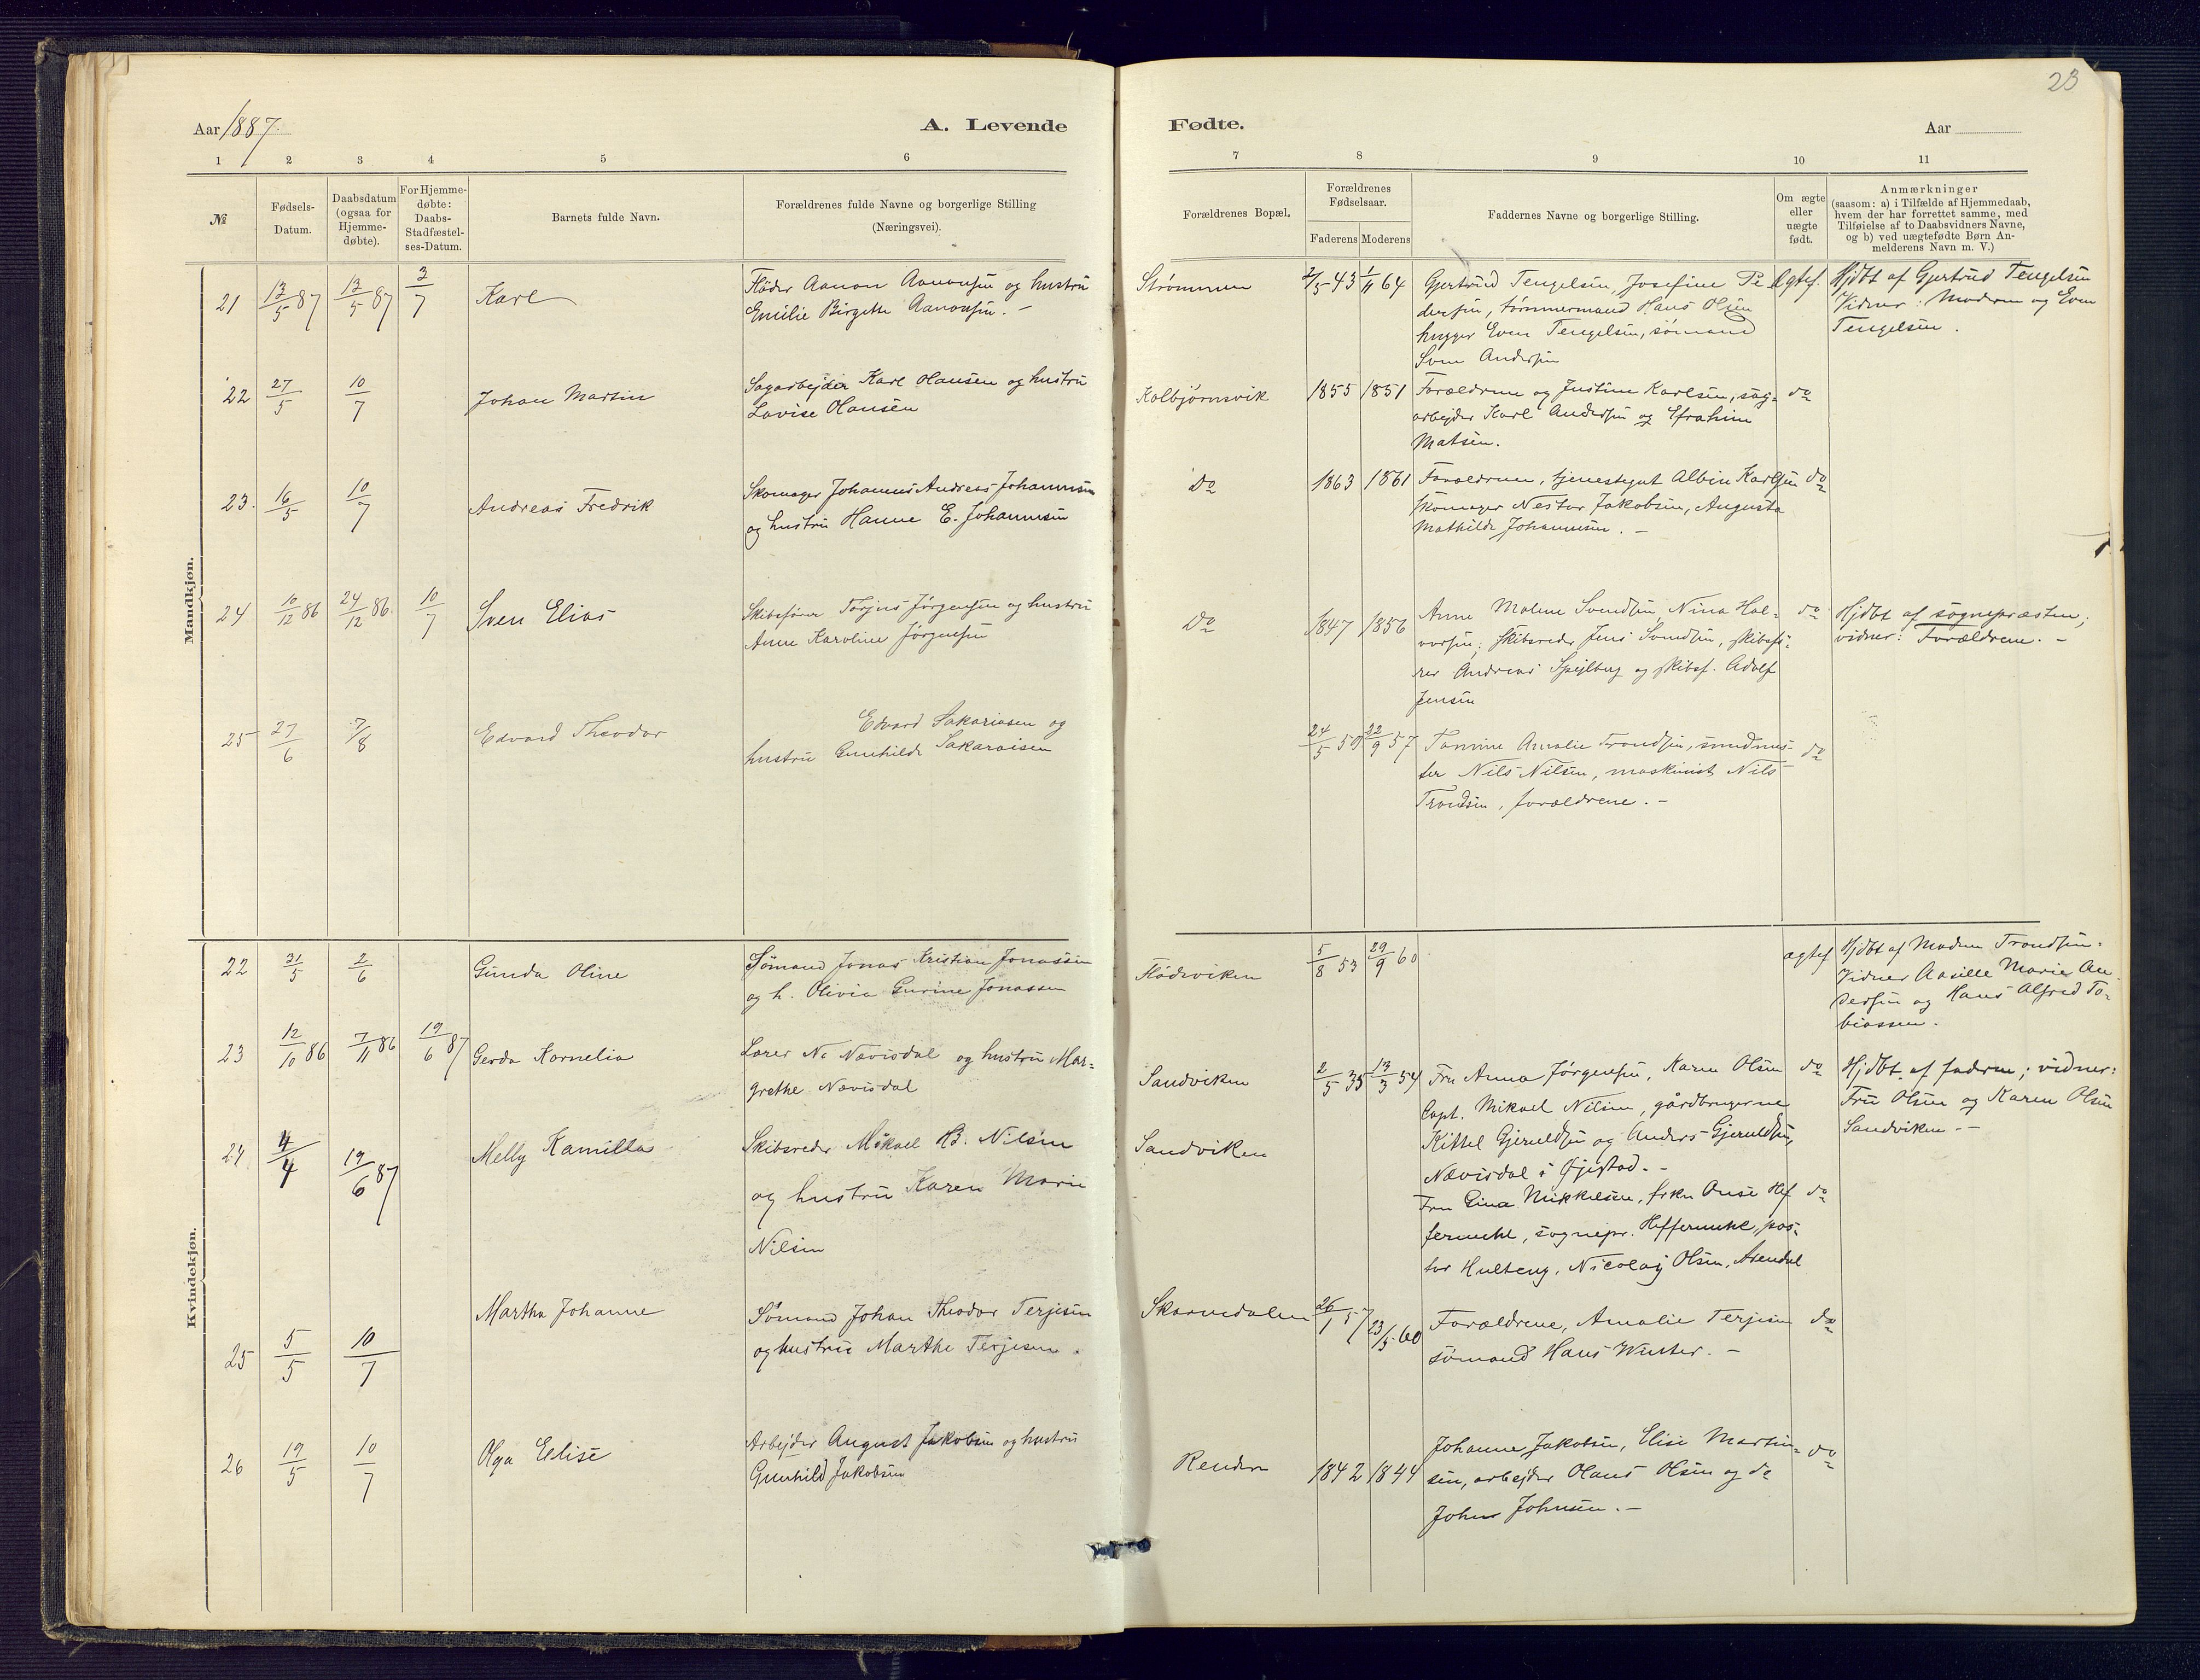 23
Aar 1887.
A. Levende
Fødte.
Aar
1 2 3 4 5 6
7 8 9 10 11
№
Fødsels-
Datum.
Daabsdatum
(ogsaa for
Hjemme-
døbte).
For Hjemme-
døbte:
Daabs-
Stadfæstel-
ses-Datum.
Barnets fulde Navn.
Forældrenes fulde Navne og borgerlige Stilling
(Næringsvei).
Forældrenes Bopæl.
Forældrenes
Fødselsaar.
Faderens Moderens
Faddernes Navne og borgerlige Stilling.
Om ægte
eller
uægte
født.
Anmærkninger
(saasom: a) i Tilfælde af Hjemmedaab,
hvem der har forrettet samme, med
Tilføielse af to Daabsvidners Navne,
og b) ved uægtefødte Børn An-
melderens Navn m. V.)
Mandkjøn.
21 13/5 87 13/5 87 3/7 Karl
Aanon Aanonsen og hustru
Emilie Birgette Aanonsen. -
Strømmen
2/5 43 1/11 64
Gjertrud Tengelsen, Josefine Pe
dersen, tømmermand Hans Olsen
hugger Even Tengelsen, sømand
Sven Andersen
Ægtef.
Hjdbt af Gjertrud Tengelsen
Vidner: Moderen og Even
Tengelsen.
22 27/5 10/7 Johan Martin
Sagarbejder Karl Hansen og hustru
Lovise Hansen
Kolbjørnsvik 1855 1851
Forældrene og Justine Karlsen, sag-
arbejder Karl Andersen og Efraim
Matsen.
do
23. 16/5 10/7 Andreas Fredrik
Skomager Johannes Andreas Johannesen
og hustru Hanne E. Johannesen
do 1863 1861
Forældrene, tjenestegut Albin Karlsen
skomager Nestor Jakobsen, Augusta
Mathilde Johannesen. -
do
24 10/12 86 24/12 86. 10/7 Sven Elias
Skibsfører Torjus Jørgensen og hustru
Anne Karoline Jørgensen
do 1847 1856
Anne Malene Svendsen, Nina Hal-
vorsen; skibsreder Jens Svendsen, skibsfø-
rer Andreas Spejlberg og skibsf. Adolf
Jensen
do
Hjdbt af sognepræsten;
vidner: Forældrene. -
25 27/6 7/8 Edvard Theodor
Edvard Sakariasen og
hustru Gunhilde Sakariasen
24/5 59 22/9 57
Tomine Amalie Trondsen, smedmes-
ter Nils Nilsen, maskinist Nils
Trondsen, forældrene. -
do
Kvindekjøn.
22 31/5 2/6 Gunda Oline
Sømand Jonas Kristian Jonassen
og h. Olivia Gurine Jonassen
Flødevigen
5/8 53 29/9 60
ægtef
Hjdbt af Madam Trondsen.
Vidner Aasille Marie An-
dersen og Hans Alfred To-
biassen.
23 12/10 86 7/11 86 19/6 87 Gerda Kornelia
Lærer N. Nævisdal og hustru Mar-
grethe Nævisdal
Sandviken
2/5 35 13/3 54
Fru Anna Jørgensen, Karen Olsen
Capt. Mikael Nilsen, gårdbrugerne
Kittel Gjeruldsen og Anders Gjeruldsen,
Nævisdal i Øjestad. -
do
Hjdbt. af faderen; vidner:
Fru Olsen og Karen Olsen
Sandviken -
24. 4/4 19/6 87 Melly Kamilla
Skibsreder Mikael B. Nilsen
og hustru Karen Marie
Nilsen
Sandviken
Fru Gina Mikkelsen, frkn Anse Hef
fermehl, sognepr. Heffermehl, pas-
tor Hulteng, Nicolaij Olsen, Arendal
do
25 5/5 10/7 Martha Johanne
Sømand Johan Theodor Terjesen
og hustru Marthe Terjesen.
Skarvedalen
26/1 57 23/5 60
Forældrene, Amalie Terjesen
sømand Hans Winter. -
do
26 19/5 10/7 Olga Eelise
Arbejder August Jakobsen og hustru
Gunhild Jakobsen
Renden 1842 1844
Johanne Jakobsen, Elise Martin-
sen, arbejder Olaus Olsen og do
Johns Johnsen. -
do